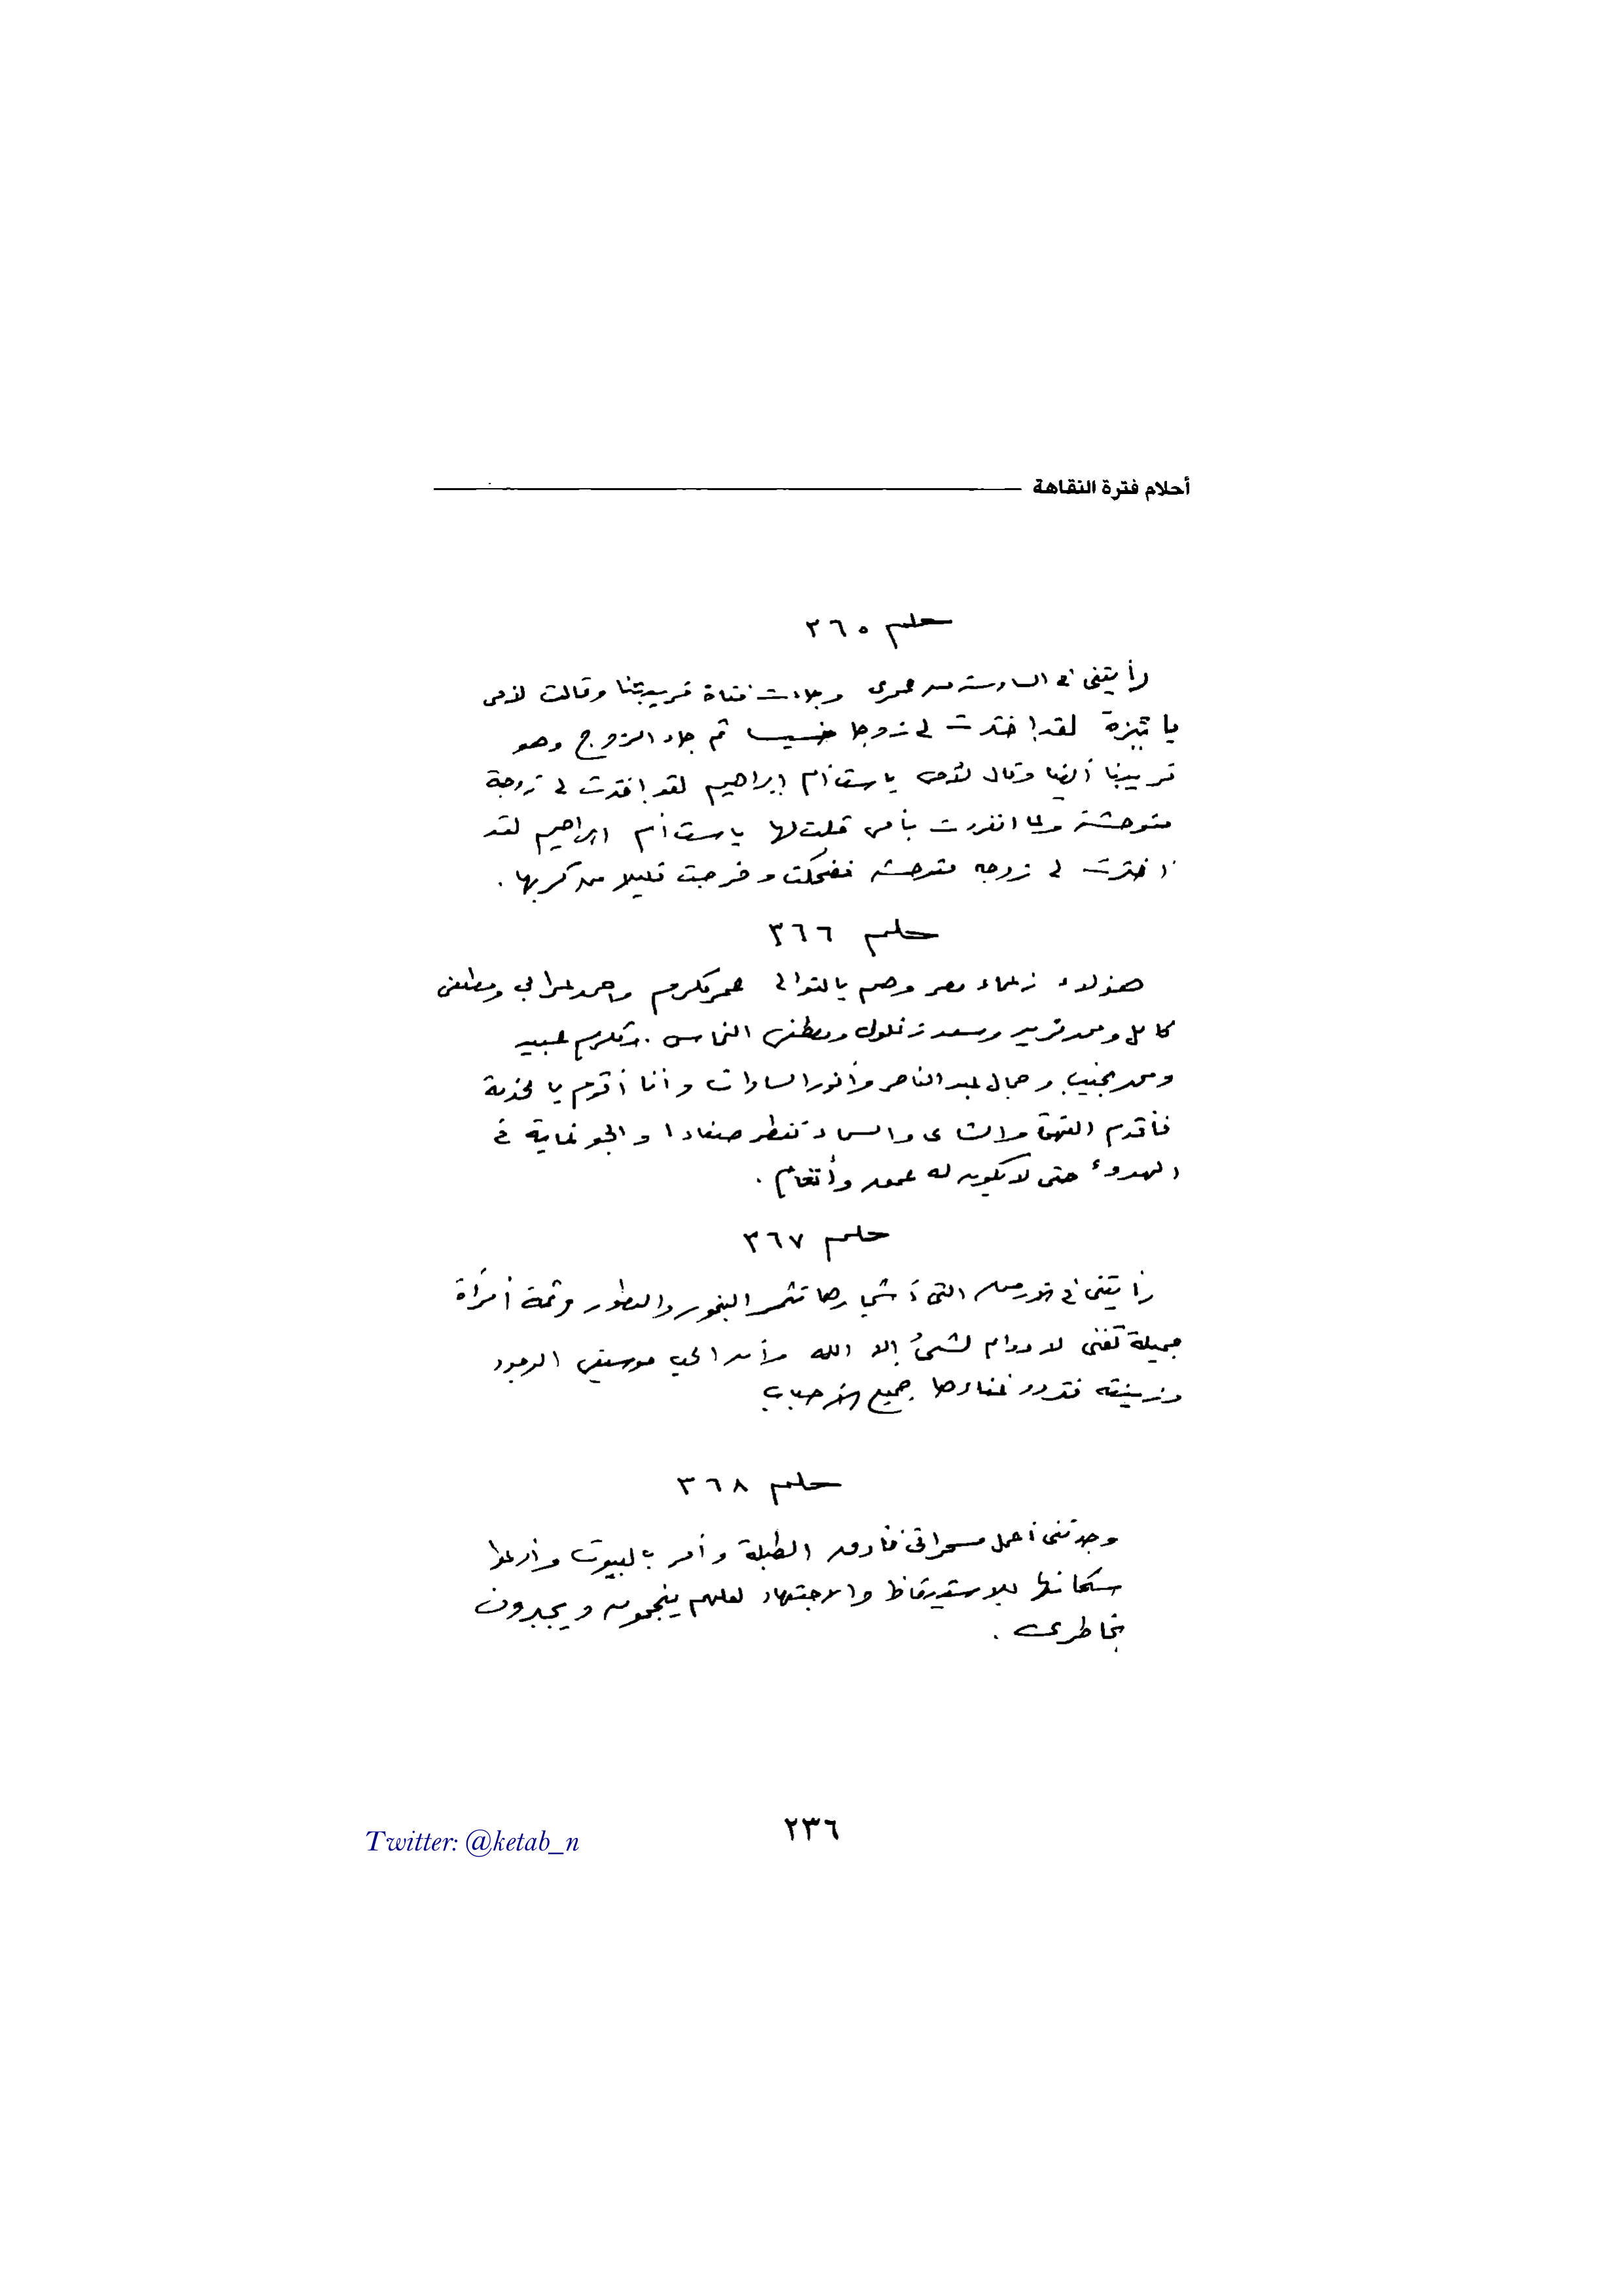 أحلام فترة النقاهة
حلم ٣٦٥
رأيتنى فى السادسة من عمرى وجاءت فتاة قريبتنا وقالت لأمى
يا نينة لقد اخترت لى زوجا خسيسا ثم جاء الزوج وهو
قريبنا أيضا وقال لأمى يا ست أم ابراهيم لقد اخترت لى زوجة
متوحشة ولما انفردت بأمى قلت لها يا ست أم ابراهيم لقد
اخترت لى زوجه متوحشه فضحكت وخرجت قليلا من كربها .
حلم ٣٦٦
هؤلاء زعماء مصر وهم بالتوالى عمر مكرم واحمد عرابي ومصطفى
كامل ومحمد فريد وسعد زغلول ومصطفى النحاس . ومكرم عبيد
ومحمد نجيب وجمال عبد الناصر وأنور السادات وأنا أقوم بالخدمة
فأقدم القهوة والشاى والسماد تنطر والجو غاية فى
الهدوء حتى لا يكون له عمق وأنغام .
حلم ٣٦٧
رأيتنى فى التى أشجارها تثمر البخور والعطور وثمة أمرأة
جميلة تغنى لا دوام لشئ إلا الله وأن الحب موسيقى الوجود
وزينته فتردد غناءها جميع الأحباب
حلم ٣٦٨
وجدتنى أعمل مسحراتى فأدق الطبلة وأمر بالبيوت وأدعوا
سكانها للاستيقاظ والاجتهاد لعلهم ينجحون ويجبرون
بخاطرى .
٢٣٦
Twitter: @ketab_n